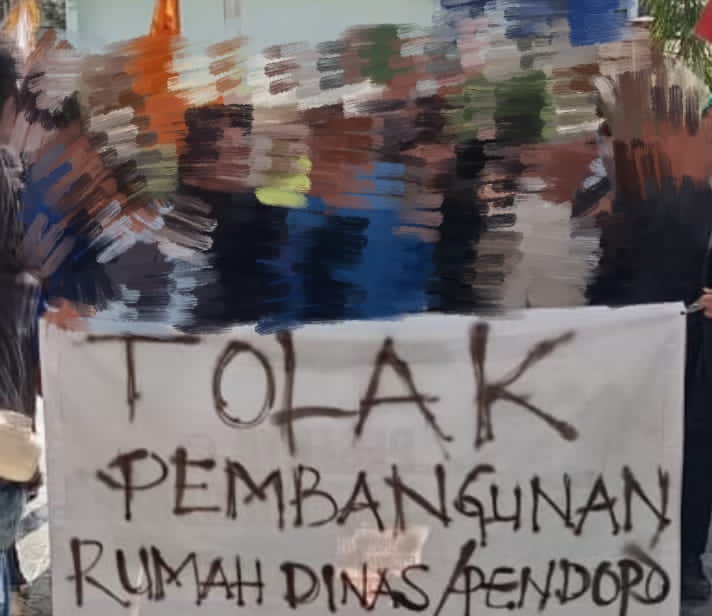 TOLAK
PEMBANGUNAN
RUMAH DINAS/PENDOPO